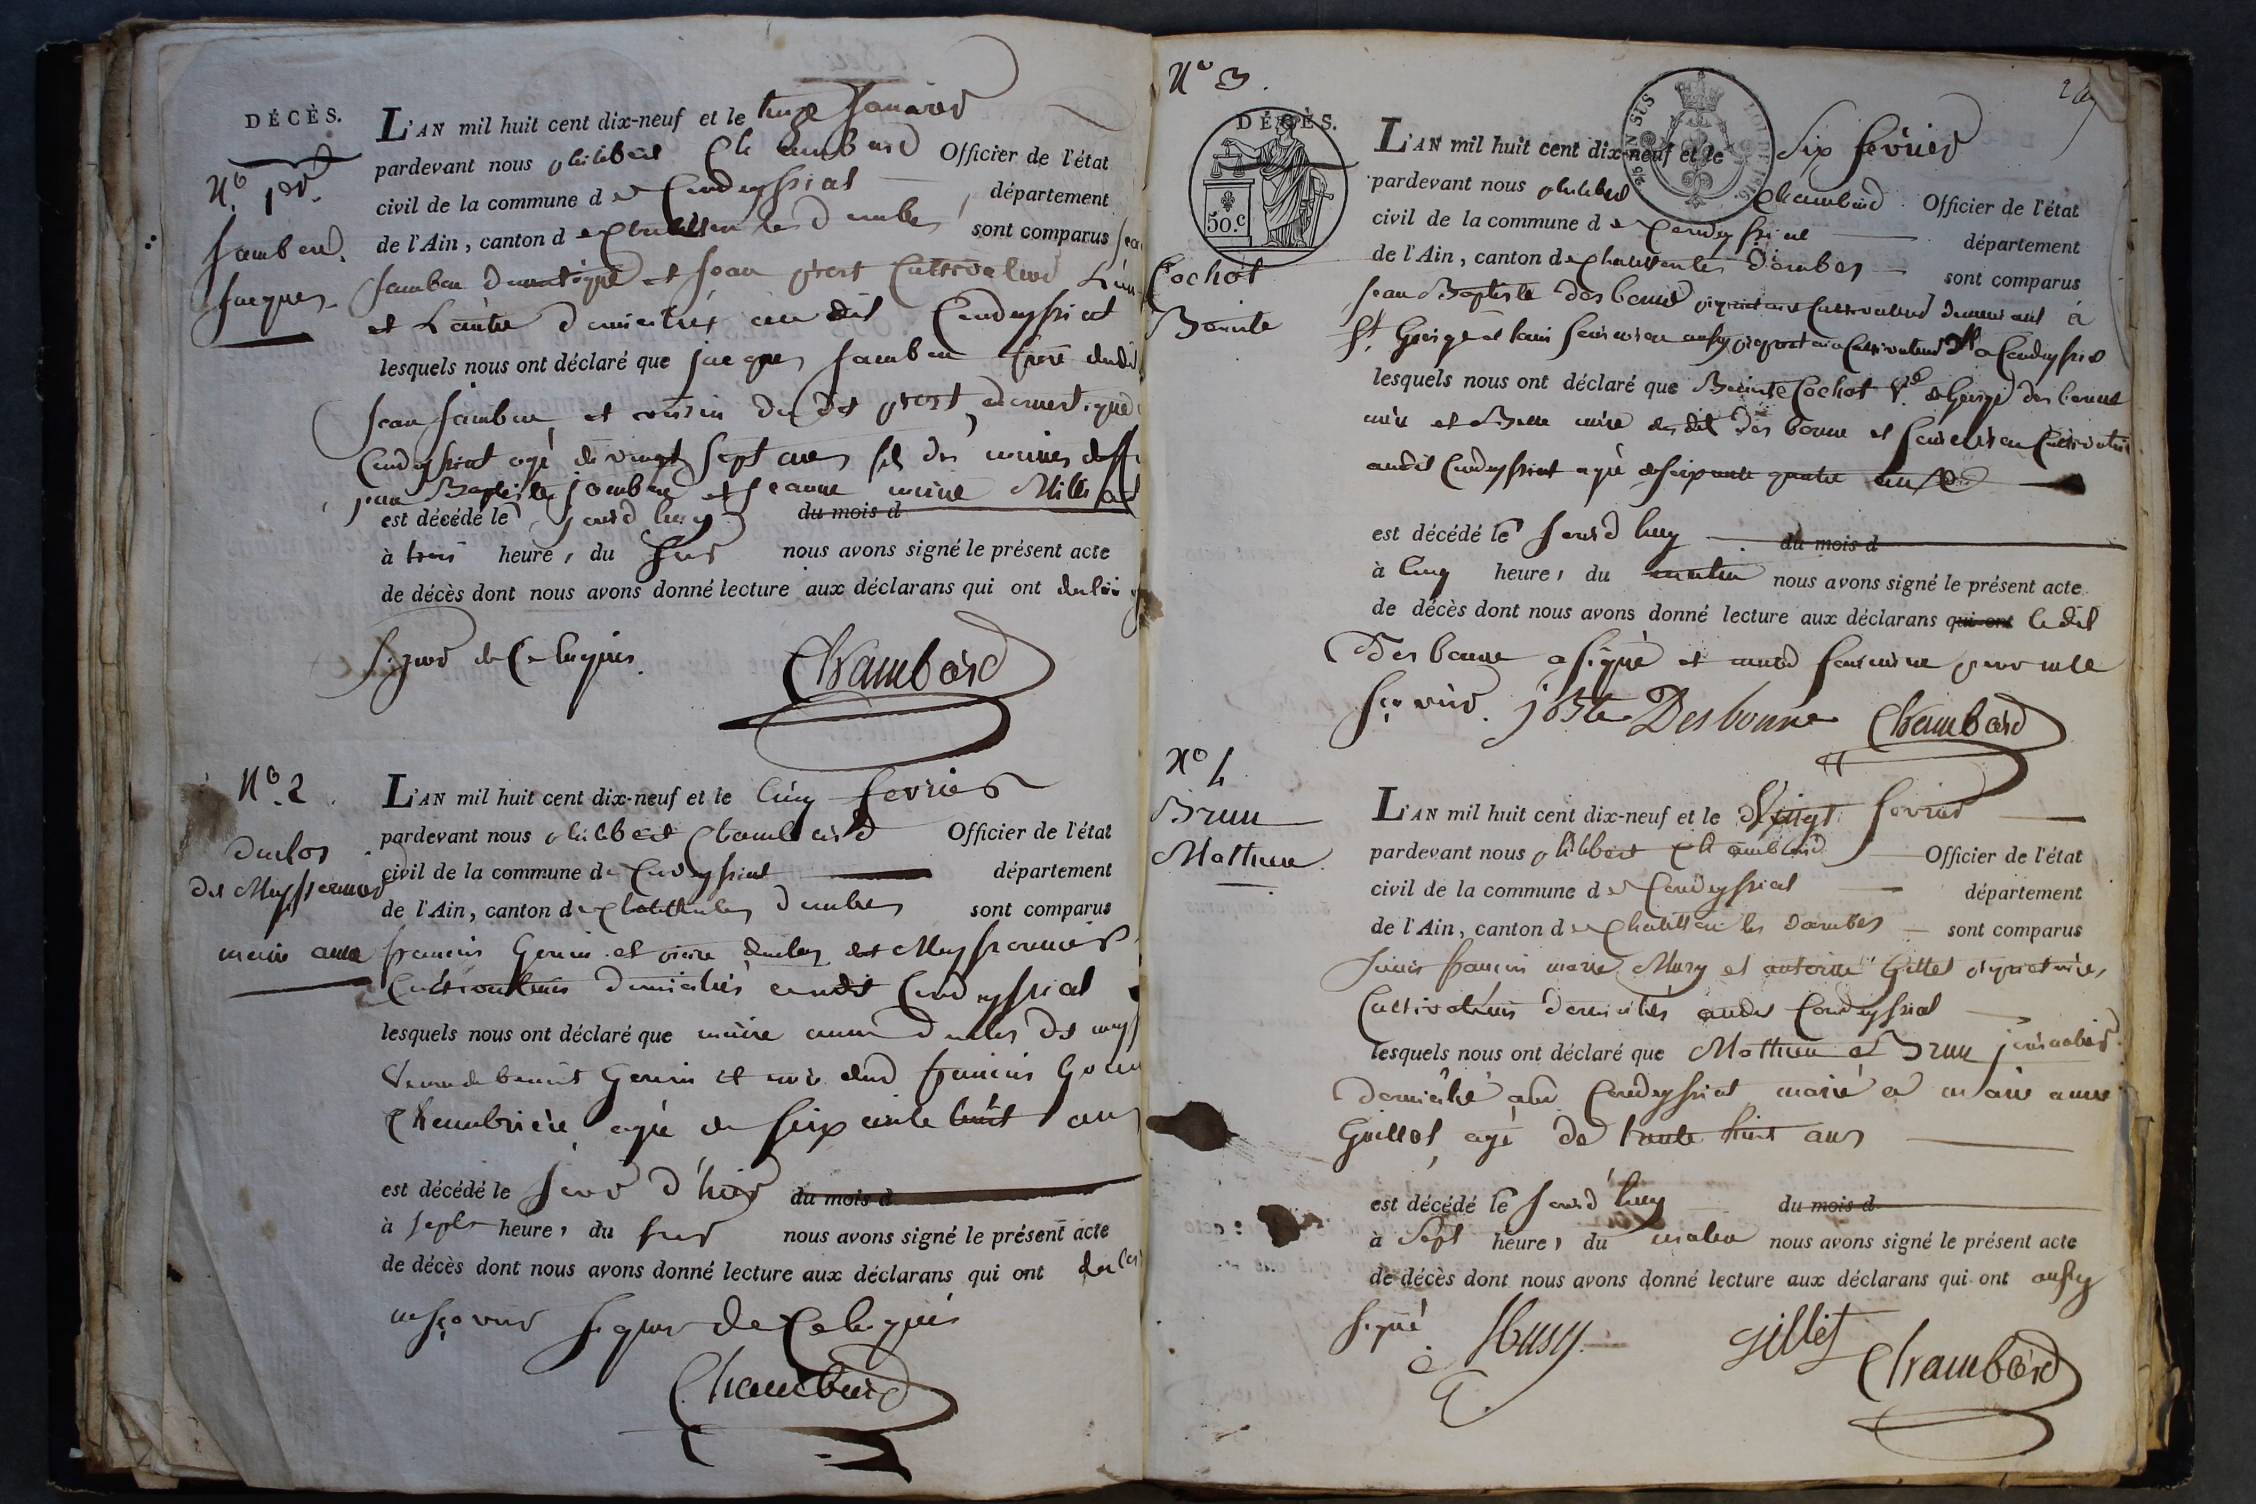 DÉCÈS.
N.° 1er.
Jambon
Jacques
L'AN mil huit cent dix-neuf et le Janvier
pardevant nous philibert Chambard Officier de l'état
civil de la commune de Condeyssiat département
de l'Ain, canton de Chatillon les dombes sont comparus
Jambon domestique et Jean prost Cultivateur
et L'autre domiciliés au dit Condeyssiat
lesquels nous ont déclaré que jacques Jambon frere dudit
Jean Jambon et cousin du dit prost, domestique
Condeyssiat agé de vingt sept ans fils des
jean Baptiste jambon et jeanne marie
est décédé le jourd'huy du mois d
à trois heures du soir nous avons signé le présent acte
de décès dont nous avons donné lecture aux déclarans qui ont
signer de Ce enquis
Chambard
N.° 2
duclos
des Meyssonnier
marie anne
L'AN mil huit cent dix-neuf et le Cinq fevrier
pardevant nous philibert Chambard Officier de l'état
civil de la commune de Condeyssiat département
de l'Ain, canton de Chatillon les dombes sont comparus
francois Gonin et duclos des Meyssonnier
Cultivateurs domiciliés audit Condeyssiat
lesquels nous ont déclaré que marie anne duclos des
Veuve de benoit Gonin et dud francois
Chambrière, agée de soixante huit ans
est décédé le jour d'hier du mois d
à sept heures du soir nous avons signé le présent acte
de décès dont nous avons donné lecture aux déclarans qui ont
signer de Ce enquis
Chambard
N° 3.
DÉCÈS.
50.C
EN SUS
Cochet
Benoite
L'AN mil huit cent dix-neuf et le six fevrier
pardevant nous philibert Chambard Officier de l'état
civil de la commune de Condeyssiat département
de l'Ain, canton de Chatillon les Dombes sont comparus
Jean Baptiste Desbonne propriétaire Cultivateur demeurant à
St. George et aussy propriétaire Cultivateur a
lesquels nous ont déclaré que Benoite Cochet Ve. de George des bonne
mère et Belle mère du dit Des bonne et
audit Condeyssiat agée de soixante quatre ans
est décédé le jourd'huy du mois d
à Cinq heures du matin nous avons signé le présent acte
de décès dont nous avons donné lecture aux déclarans qui ont le dit
Des bonne a signé et non pour ne le
sçavoir. jBste Desbonne Chambard
N° 4
Brun
Mathieu
L'AN mil huit cent dix-neuf et le Vingt fevrier
pardevant nous philibert Chambard Officier de l'état
civil de la commune de Condeyssiat département
de l'Ain, canton de Chatillon les dombes sont comparus
francois marie Musy et antoine Gillet propriétaires,
Cultivateurs domiciliés audit Condeyssiat
lesquels nous ont déclaré que Mathieu Brun journalier
domicilié au Condeyssiat marié a marie anne
Guillot, agé de trente huit ans
est décédé le jourd'huy du mois d
à Sept heures du matin nous avons signé le présent acte
de décès dont nous avons donné lecture aux déclarans qui ont aussy
signé Musy. Gillet Chambard